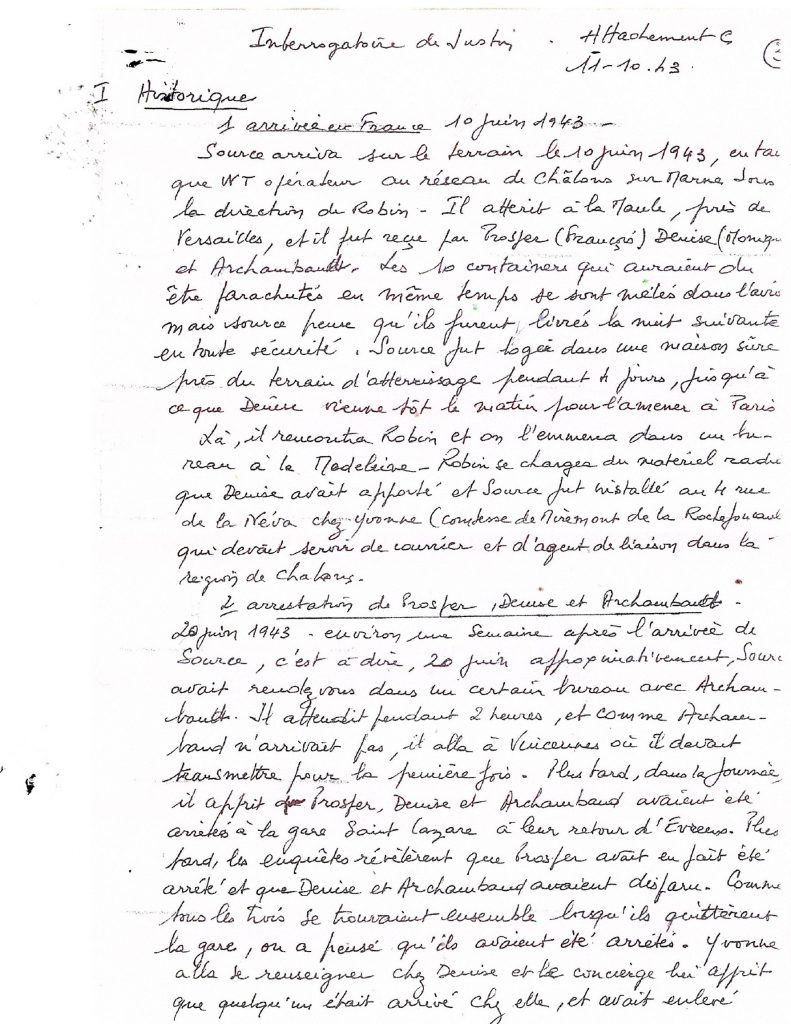 Interrogatoire de Justin . Attachement C
11-10.43.
I Historique
1 arrivée en France 10 juin 1943 -
Source arriva sur le terrain le 10 juin 1943, en ta
que WT opérateur au réseau de Châlons sur Marne sous
la direction de Robin - Il atterit à la Maule, près de
Versailles, et il fut reçu par Prosper (François) Denise (Moniqu
et Archambault. Les 10 containers qui auraient du
être parachutés en même temps se sont mêlés dans l'avio
mais source pense qu'ils furent livrés la nuit suivante
en toute sécurité. Source fut logée dans une maison sûre
près du terrain d'atterrissage pendant 4 jours, jusqu'à
ce que Denise vienne tôt le matin pour l'amener à Paris
Là, il rencontra Robin et on l'emmena dans un bu-
reau à la Madeleine - Robin se chargea du matériel radi
que Denise avait apporté et Source fut installé au 4 rue
de la Néva chez Yvonne (comtesse de Miremont de la Rochefoucaul
qui devait servir de courrier et d'agent de liaison dans la
région de Chalons.
2 arrestation de Prosper, Denise et Archambault -
20 juin 1943 - environ une semaine après l'arrivée de
Source, c'est à dire, 20 juin approximativement, Sourc
avait rendez vous dans un certain bureau avec Archam-
bault. Il attendit pendant 2 heures, et comme Archam-
baud n'arrivait pas, il alla à Vincennes où il devait
transmettre pour la première fois. Plus tard, dans la journée,
il apprit que Prosper, Denise et Archambaud avaient été
arrêtés à la gare Saint Lazare à leur retour d'Evreux. Plus
tard, les enquêtes révélèrent que Prosper avait en fait été
arrêté et que Denise et Archambaud avaient disparu. Comme
tous les trois se trouvaient ensemble lorsqu'ils quittèrent
la gare, on a pensé qu'ils avaient été arrêtés. Yvonne
alla se renseigner chez Denise et le concierge lui apprit
que quelqu'un était arrivé chez elle, et avait enlevé